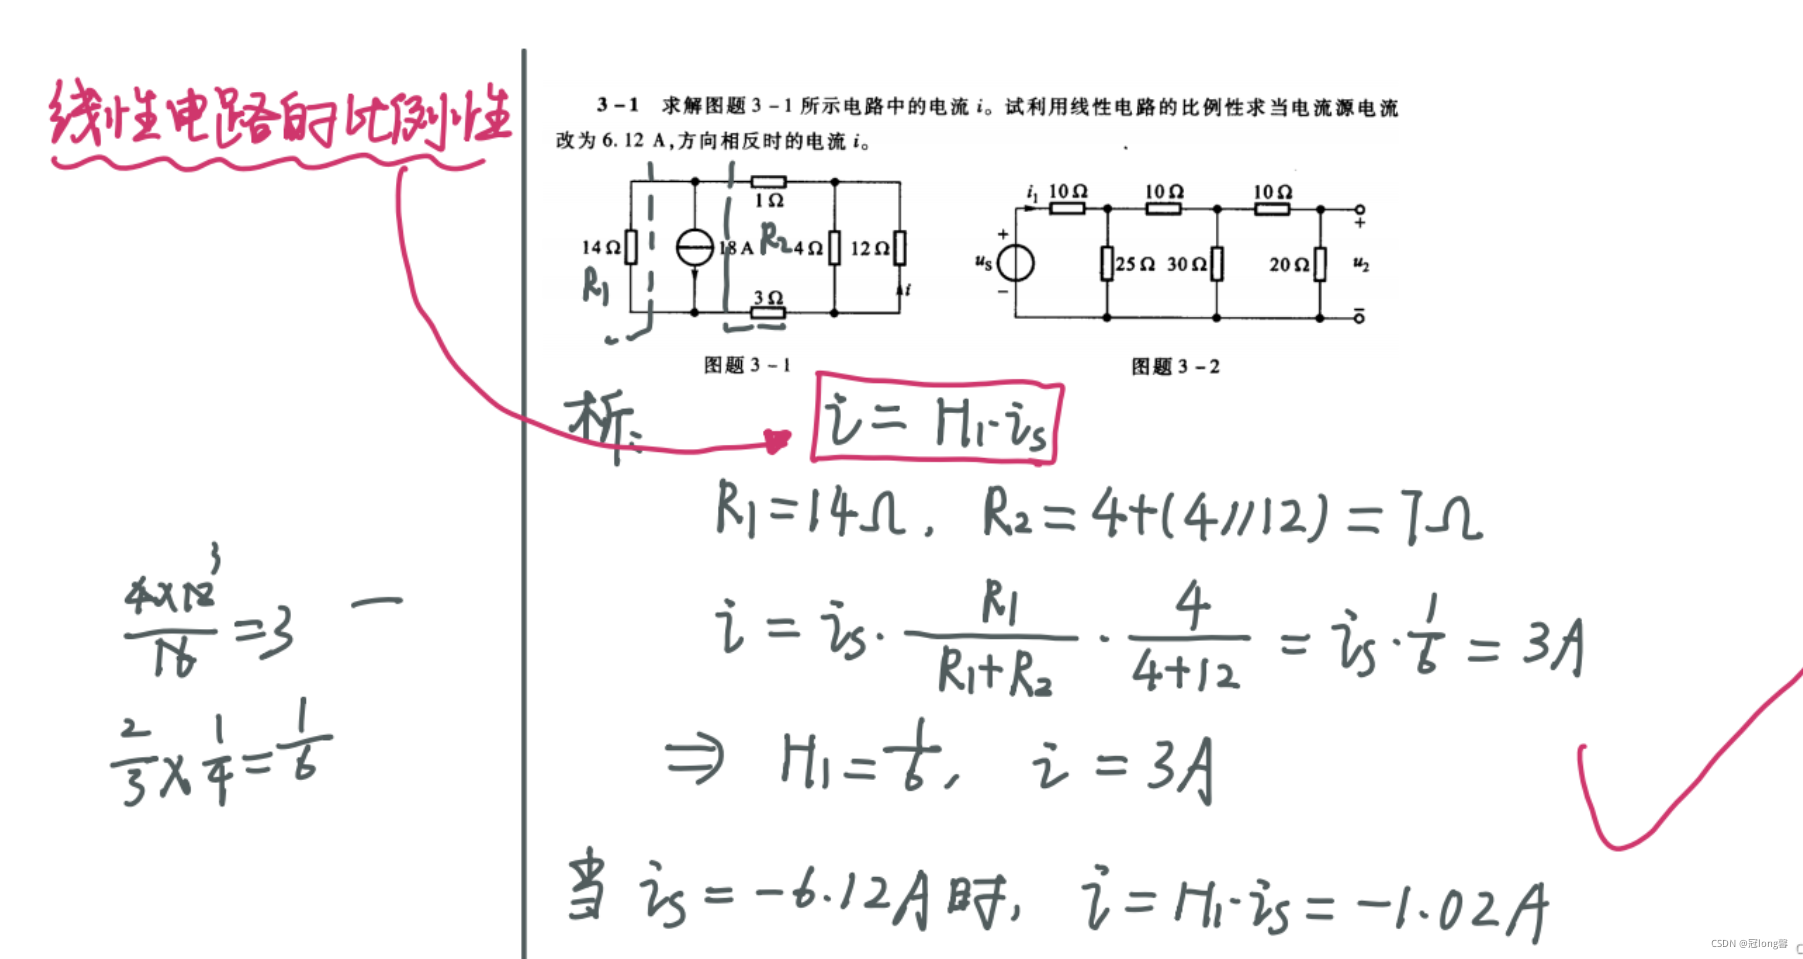 线性电路的比例性
3-1 求解图题 3-1 所示电路中的电流 i。试利用线性电路的比例性求当电流源电流
改为 6.12 A,方向相反时的电流 i。
14Ω
R1
18A
1Ω
R2
4Ω
12Ω
3Ω
i
图题 3-1
i1
10Ω
10Ω
10Ω
+
us
-
25Ω
30Ω
20Ω
+
u2
-
图题 3-2
析:
i = H1·is
R1=14Ω, R2=4+(4//12)=7Ω
4×12/16=3
3
—
i = is · R1/(R1+R2) · 4/(4+12) = is · 1/6 = 3A
2/3 × 1/4 = 1/6
⇒ H1=1/6, i=3A
当 is = -6.12A 时, i = H1·is = -1.02A
CSDN @冠long馨